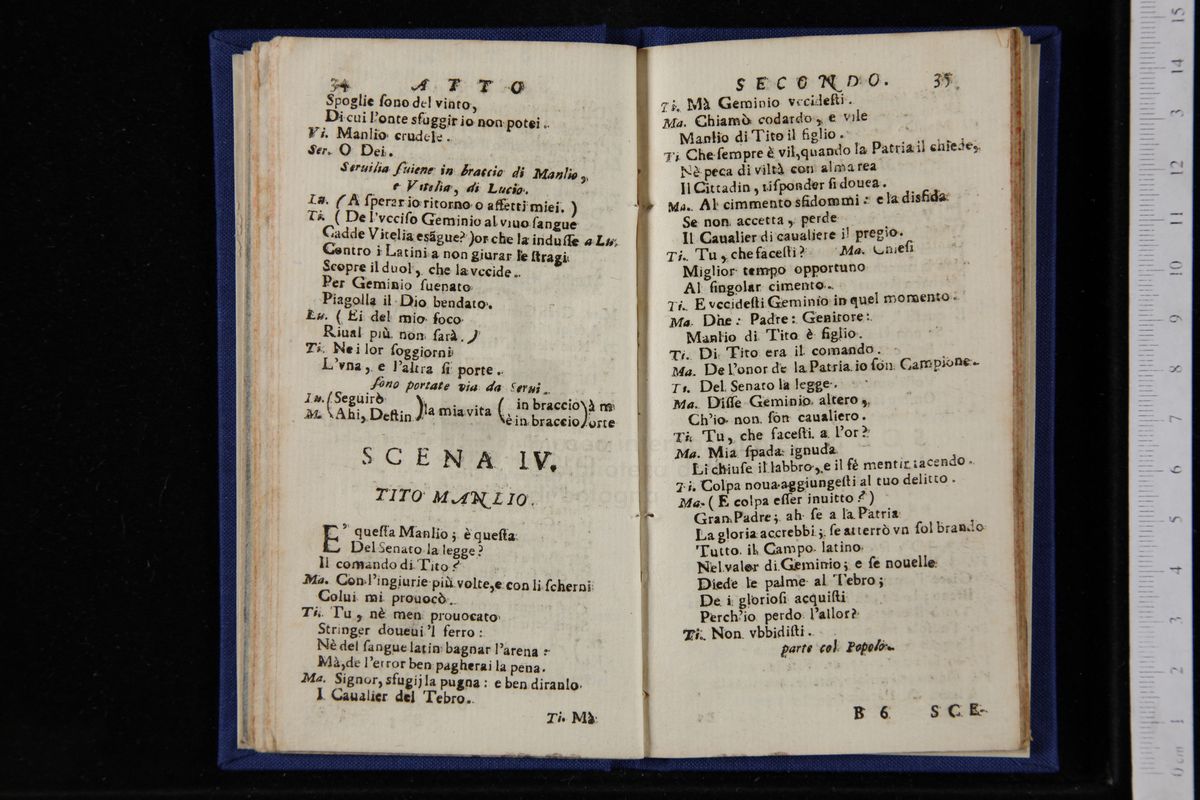 34 ATTO
Spoglie ſono del vinto,
Di cui l'onte sfuggir io non potei.
Vi. Manlio crudele.
Ser. O Dei.
Seruilia ſuiene in braccio di Manlio,
e Vitelia, di Lucio.
Lu. (A ſperar io ritorno o affetti miei.)
Ti. (De l'vcciſo Geminio al viuo ſangue
Cadde Vitelia esãgue?) or che la induſſe a Lu.
Contro i Latini a non giurar le ſtragi
Scopre il duol, che la vccide.
Per Geminio ſuenato
Piagolla il Dio bendato.
Lu. (Ei del mio foco
Riual più non ſarà.)
Ti. Ne i lor ſoggiorni
L'vna, e l'altra ſi porte.
ſono portate via da Serui.
Lu. (Seguirò) la mia vita (in braccio) à m
M. (Ahi, Deſtin) (è in braccio) orte
SCENA IV.
TITO MANLIO.
E' queſta Manlio; è queſta
Del Senato la legge?
Il comando di Tito?
Ma. Con l'ingiurie più volte, e con li ſcherni
Colui mi prouocò.
Ti. Tu, nè men prouocato
Stringer doueui 'l ferro:
Nè del ſangue latin bagnar l'arena:
Mà, de l'error ben pagherai la pena.
Ma. Signor, sfugij la pugna: e ben diranlo
I Caualier del Tebro.
Ti. Mà
SECONDO. 35
Ti. Mà Geminio vccideſti.
Ma. Chiamò codardo, e vile
Manlio di Tito il figlio.
Ti. Che ſempre è vil, quando la Patria il chiede,
Nè peca di viltà con alma rea
Il Cittadin, riſponder ſi douea.
Ma. Al cimmento sfidommi: e la disfida
Se non accetta, perde
Il Caualier di caualiere il pregio.
Ti. Tu, che faceſti? Ma. Chieſi
Miglior tempo opportuno
Al ſingolar cimento.
Ti. E vccideſti Geminio in quel momento.
Ma. Dhe: Padre: Genitore:
Manlio di Tito è figlio.
Ti. Di Tito era il comando.
Ma. De l'onor de la Patria io ſon Campione.
Ti. Del Senato la legge.
Ma. Diſſe Geminio altero,
Ch'io non ſon caualiero.
Ti. Tu, che faceſti a l'or?
Ma. Mia ſpada ignuda
Li chiuſe il labbro, e il fè mentir tacendo.
Ti. Colpa noua aggiungeſti al tuo delitto.
Ma. (E colpa eſſer inuitto?)
Gran Padre; ah ſe a la Patria
La gloria accrebbi; ſe atterrò vn ſol brando
Tutto il Campo latino
Nel valor di Geminio; e ſe nouelle
Diede le palme al Tebro;
De i glorioſi acquiſti
Perch'io perdo l'allor?
Ti. Non vbbidiſti.
parte col Popolo.
B 6 SCE-